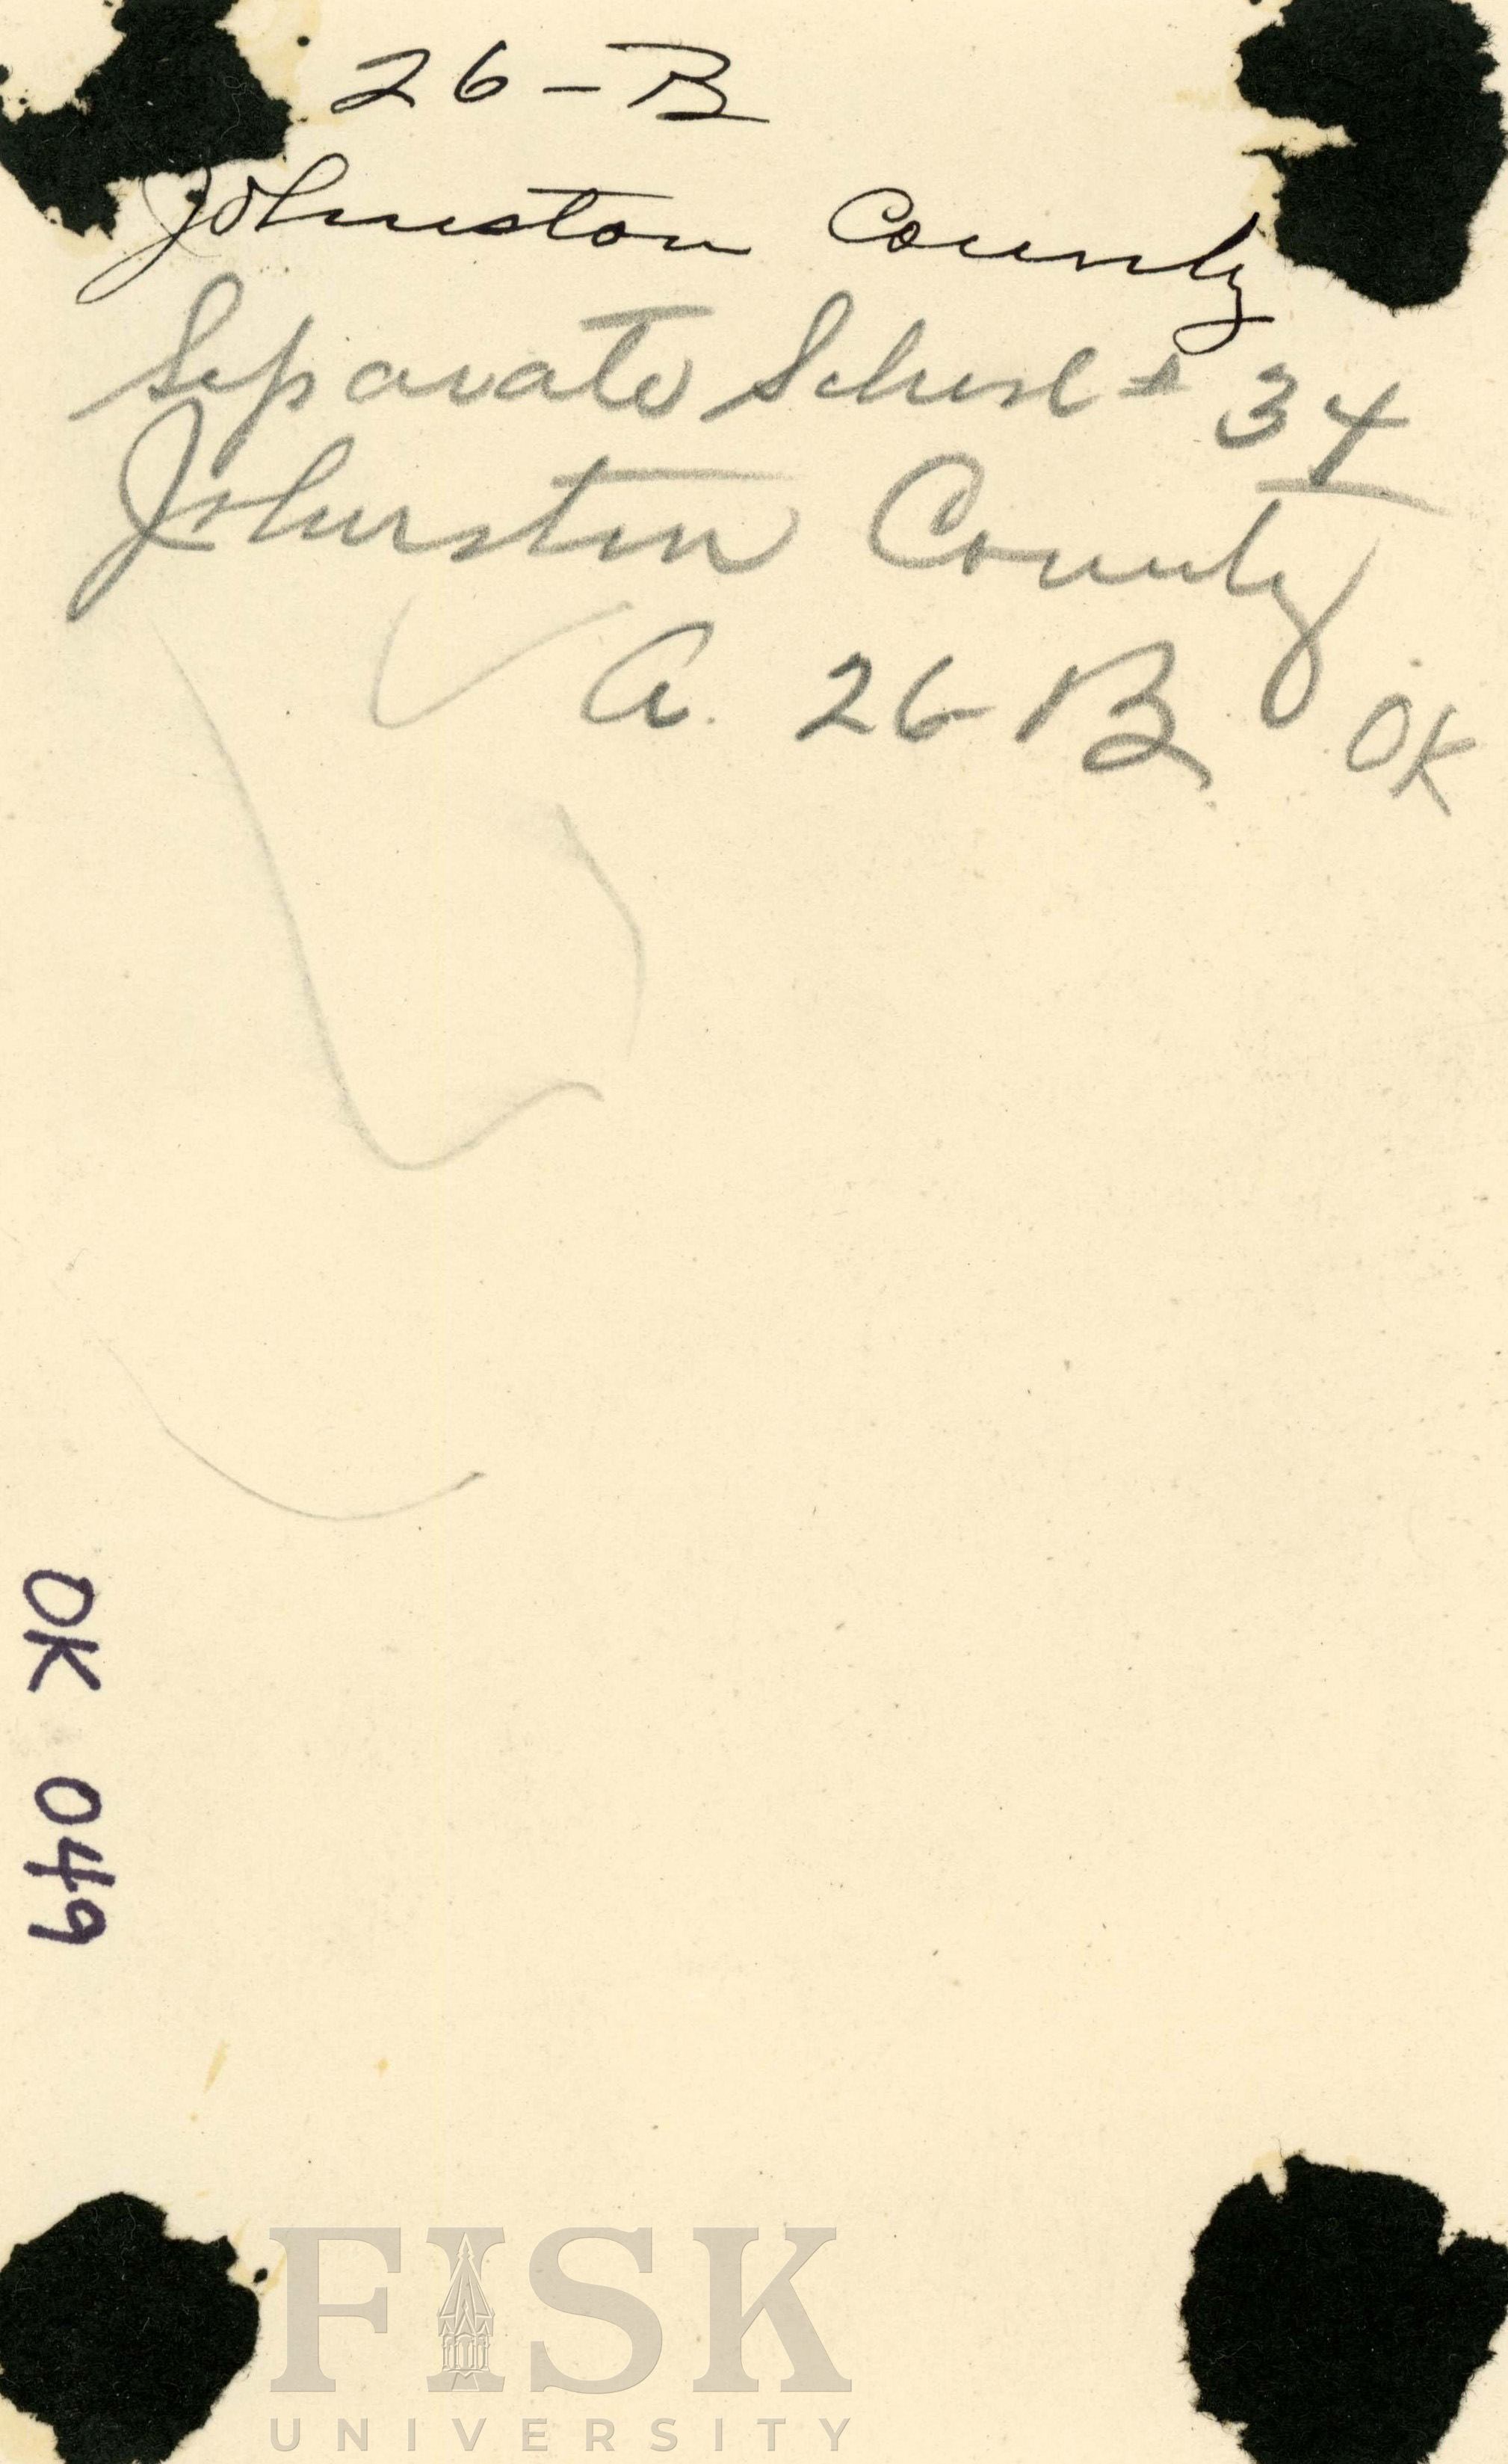 26-B
Johnston County
Separate School # 34
Johnston County
A. 26-B OK
OK 049
FISK
UNIVERSITY